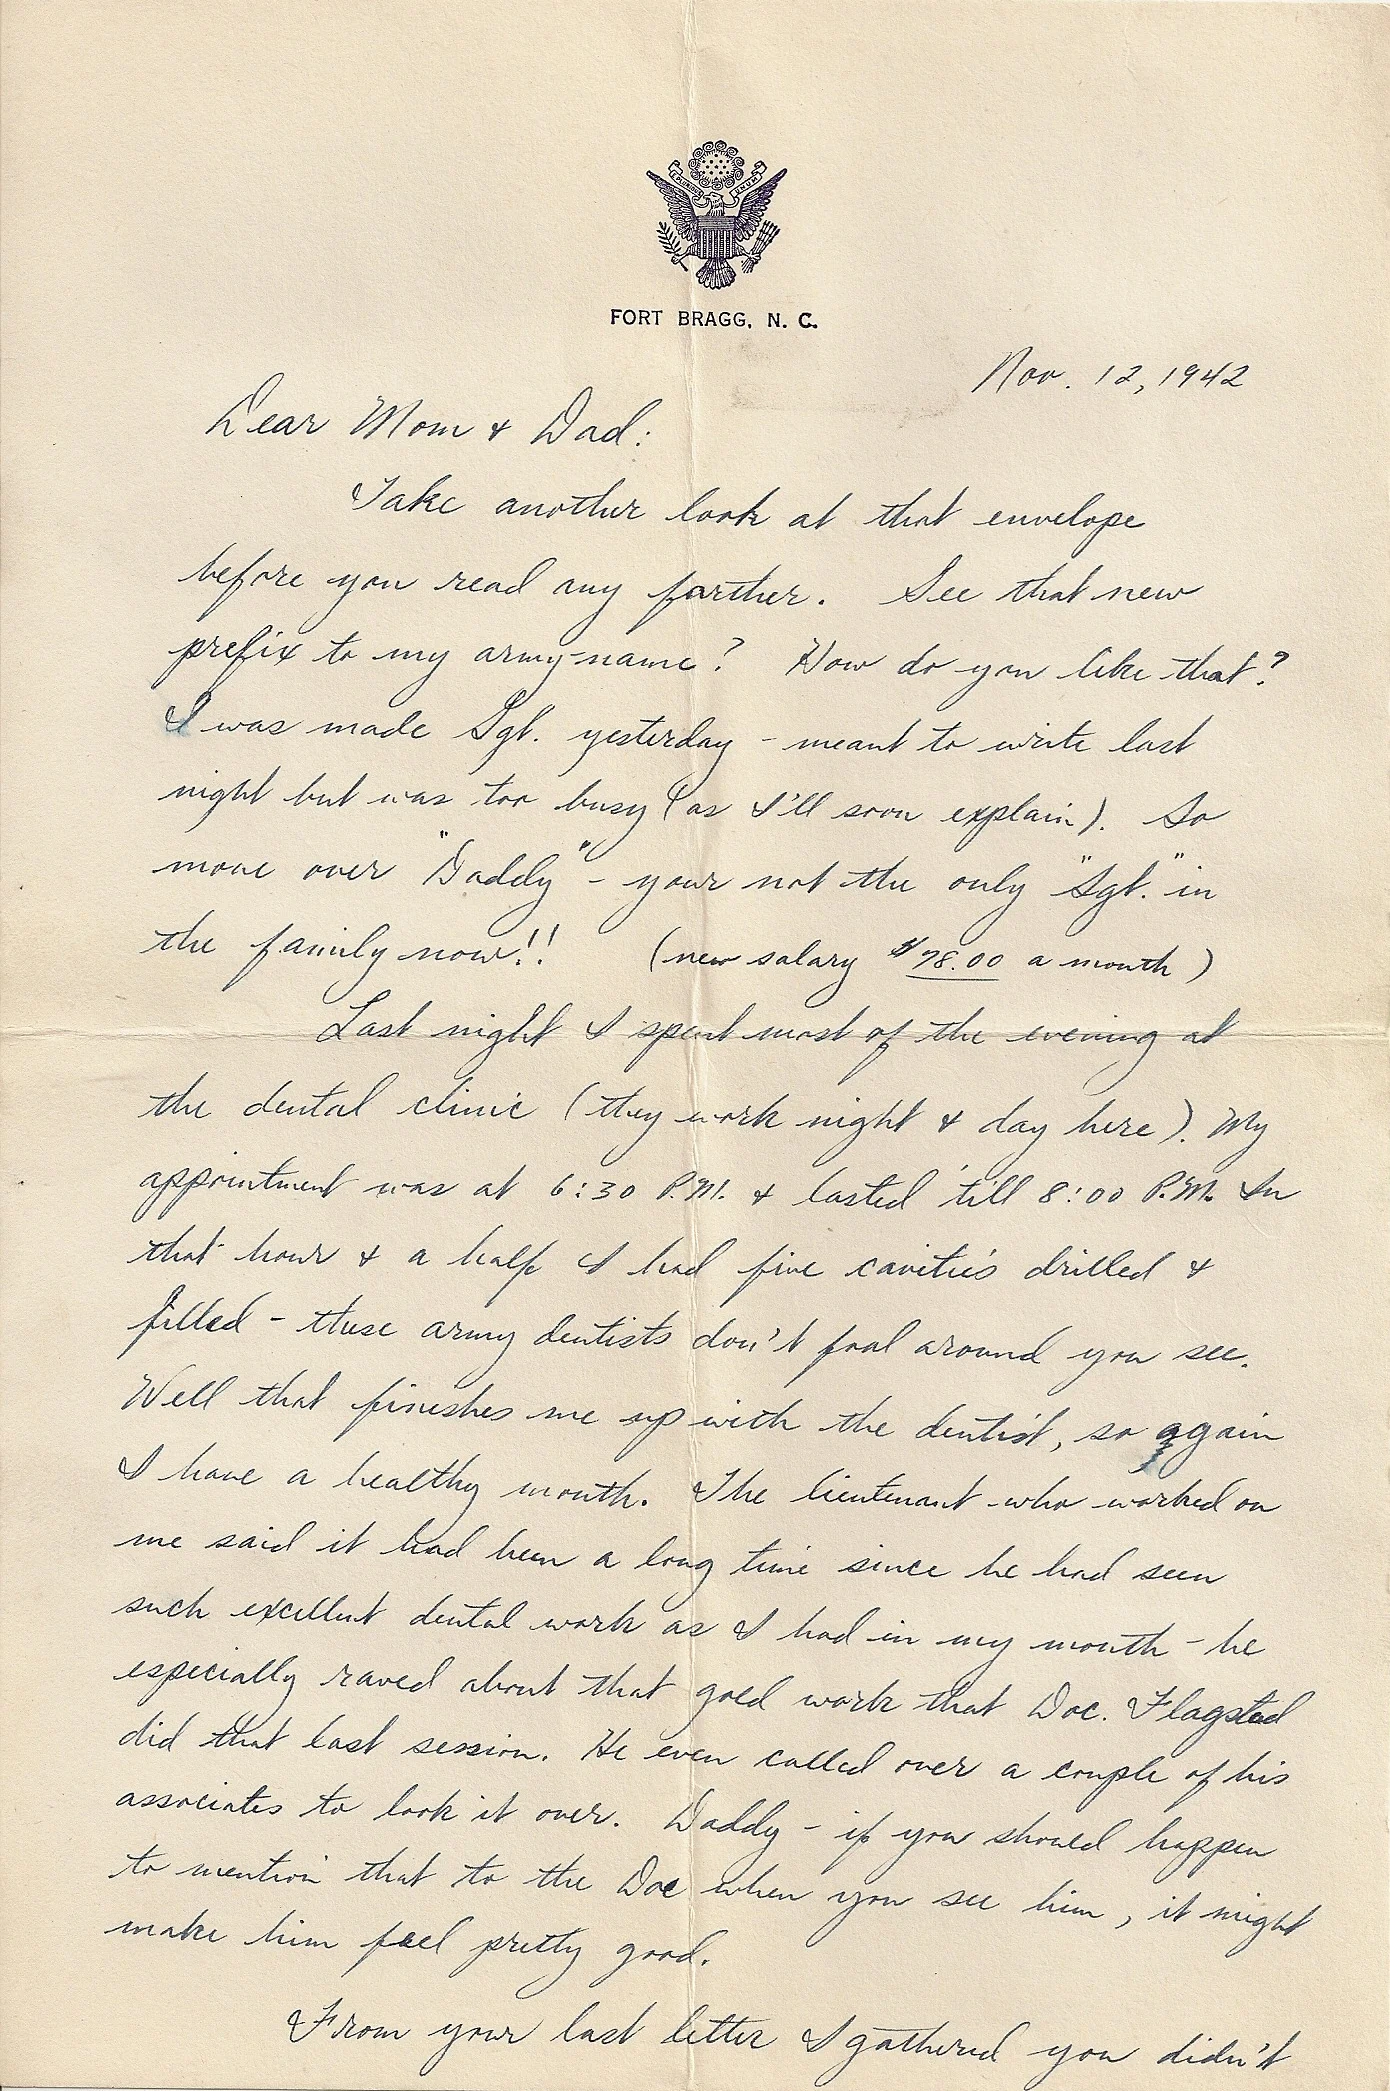 E PLURIBUS UNUM
FORT BRAGG, N. C.
Nov. 12, 1942
Dear Mom & Dad:
Take another look at that envelope
before you read any farther. See that new
prefix to my army-name? How do you like that?
I was made Sgt. yesterday - meant to write last
night but was too busy (as I'll soon explain). So
move over "Daddy" - your not the only "Sgt." in
the family now!! (new salary $78.00 a month)
Last night I spent most of the evening at
the dental clinic (they work night & day here). My
appointment was at 6:30 P.M. & lasted 'till 8:00 P.M. In
that hour & a half I had five cavities drilled &
filled - these army dentists don't fool around you see.
Well that finishes me up with the dentist, so again
I have a healthy mouth. The lieutenant who worked on
me said it had been a long time since he had seen
such excellent dental work as I had in my mouth - he
especially raved about that gold work that Doc. Flagstad
did that last session. He even called over a couple of his
associates to look it over. Daddy - if you should happen
to mention that to the Doc when you see him, it might
make him feel pretty good.
From your last letter I gathered you didn't